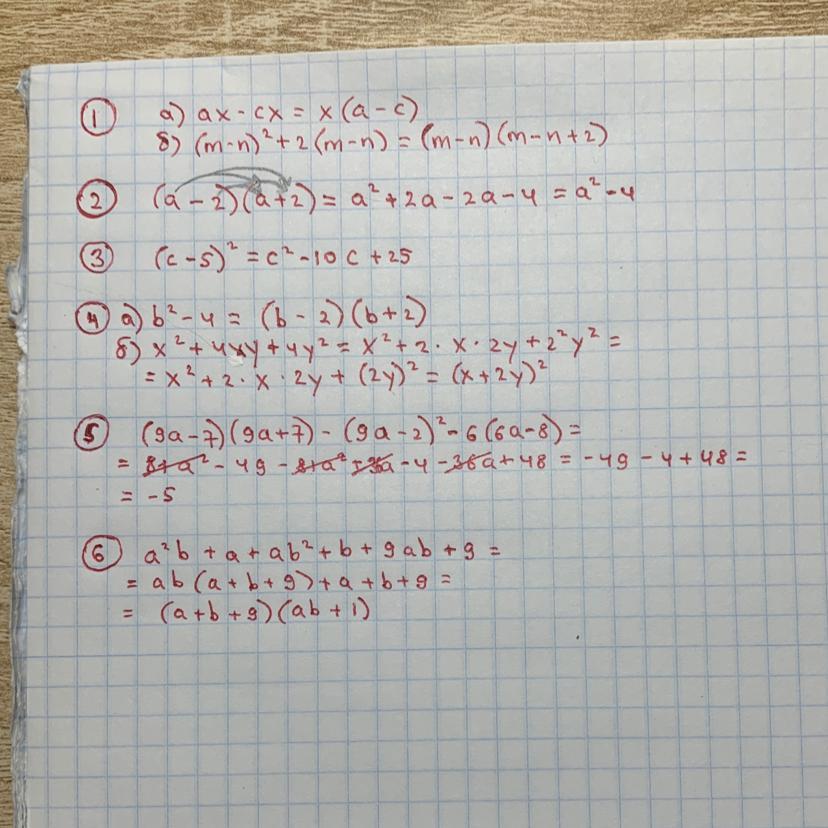 ① а) ax - cx = x(a - c)
б) (m-n)² + 2(m-n) = (m-n)(m-n+2)
② (a - 2)(a+2) = a² + 2a - 2a - 4 = a² - 4
③ (c - 5)² = c² - 10c + 25
④ а) b² - 4 = (b - 2)(b + 2)
б) x² + 4xy + 4y² = x² + 2 · x · 2y + 2²y² =
= x² + 2 · x · 2y + (2y)² = (x + 2y)²
⑤ (9a - 7)(9a + 7) - (9a - 2)² - 6(6a - 8) =
= 81a² - 49 - 81a² + 36a - 4 - 36a + 48 = -49 - 4 + 48 =
= -5
⑥ a²b + a + ab² + b + 9ab + 9 =
= ab(a + b + 9) + a + b + 9 =
= (a + b + 9)(ab + 1)